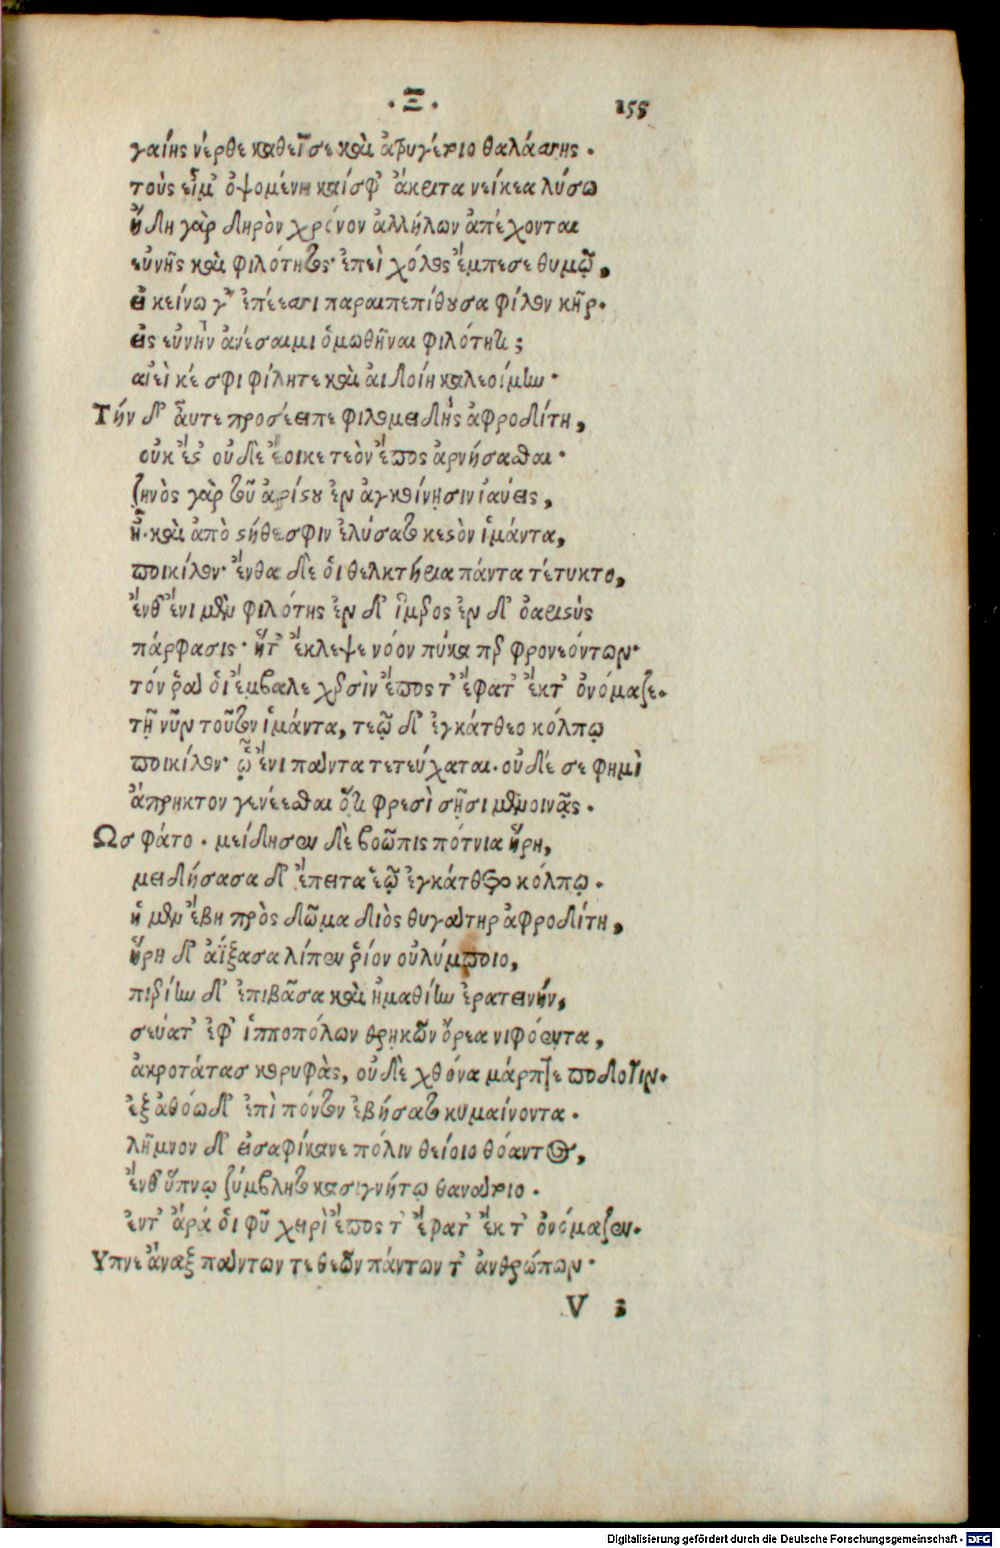 · Ξ · 155
γαίης νέρθε καθεῖσε καὶ ἀτρυγέτοιο θαλάσσης.
τοὺς εἶμ' ὀψομένη καί σφ' ἄκριτα νείκεα λύσω
ἤδη γὰρ δηρὸν χρόνον ἀλλήλων ἀπέχονται
εὐνῆς καὶ φιλότητος· ἐπεὶ χόλος ἔμπεσε θυμῷ,
εἰ κείνω γ' ἐπέεσσι παραιπεπίθουσα φίλον κῆρ.
εἰς εὐνὴν ἀνέσαιμι ὁμωθῆναι φιλότητι;
αἰεὶ κέ σφι φίλητε καὶ αἰδοίη καλεοίμην·
Τήν δ' αὖτε προσέειπε φιλομειδὴς ἀφροδίτη,
οὐκ ἔς' οὐδὲ ἔοικε τεὸν ἔπος ἀρνήσασθαι·
ζηνὸς γὰρ τοῦ ἀρίστου ἐν ἀγκοίνῃσιν ἰαύεις,
ἦ· καὶ ἀπὸ στήθεσφιν ἐλύσατο κεστὸν ἱμάντα,
ποικίλον· ἔνθα δέ οἱ θελκτήρια πάντα τέτυκτο,
ἔνθ' ἔνι μὲν φιλότης ἐν δ' ἵμερος ἐν δ' ὀαριστὺς
πάρφασις· ἥτ' ἔκλεψε νόον πύκα περ φρονεόντων·
τόν ῥά οἱ ἔμβαλε χερσὶν ἔπος τ' ἔφατ' ἔκ τ' ὀνόμαζε.
τῆ νῦν τοῦτον ἱμάντα, τεῷ δ' ἐγκάτθεο κόλπῳ
ποικίλον· ᾧ ἔνι πάντα τετεύχαται. οὐδέ σε φημὶ
ἄπρηκτον γενέεσθαι ὅτι φρεσὶ σῇσι μενοινᾷς.
Ως φάτο. μείδησεν δὲ βοῶπις πότνια ἥρη,
μειδήσασα δ' ἔπειτα ἑῷ ἐγκάτθετο κόλπῳ.
ἡ μὲν ἔβη πρὸς δῶμα διὸς θυγάτηρ ἀφροδίτη,
ἥρη δ' ἀΐξασα λίπεν ῥίον οὐλύμποιο,
πιερίην δ' ἐπιβᾶσα καὶ ἠμαθίην ἐρατεινήν,
σεύατ' ἐφ' ἱπποπόλων θρηκῶν ὄρεα νιφόεντα,
ἀκροτάτας κορυφὰς, οὐδὲ χθόνα μάρπτε ποδοῖιν.
ἐξ ἀθόω δ' ἐπὶ πόντον ἐβήσατο κυμαίνοντα.
λῆμνον δ' εἰσαφίκανε πόλιν θείοιο θόαντος,
ἔνθ' ὕπνῳ ξύμβλητο κασιγνήτῳ θανάτοιο.
ἔντ' ἄρά οἱ φῦ χειρὶ ἔπος τ' ἔφατ' ἔκ τ' ὀνόμαζεν.
Υπνε ἄναξ πάντων τε θεῶν πάντων τ' ἀνθρώπων·
V 3
Digitalisierung gefördert durch die Deutsche Forschungsgemeinschaft - DFG